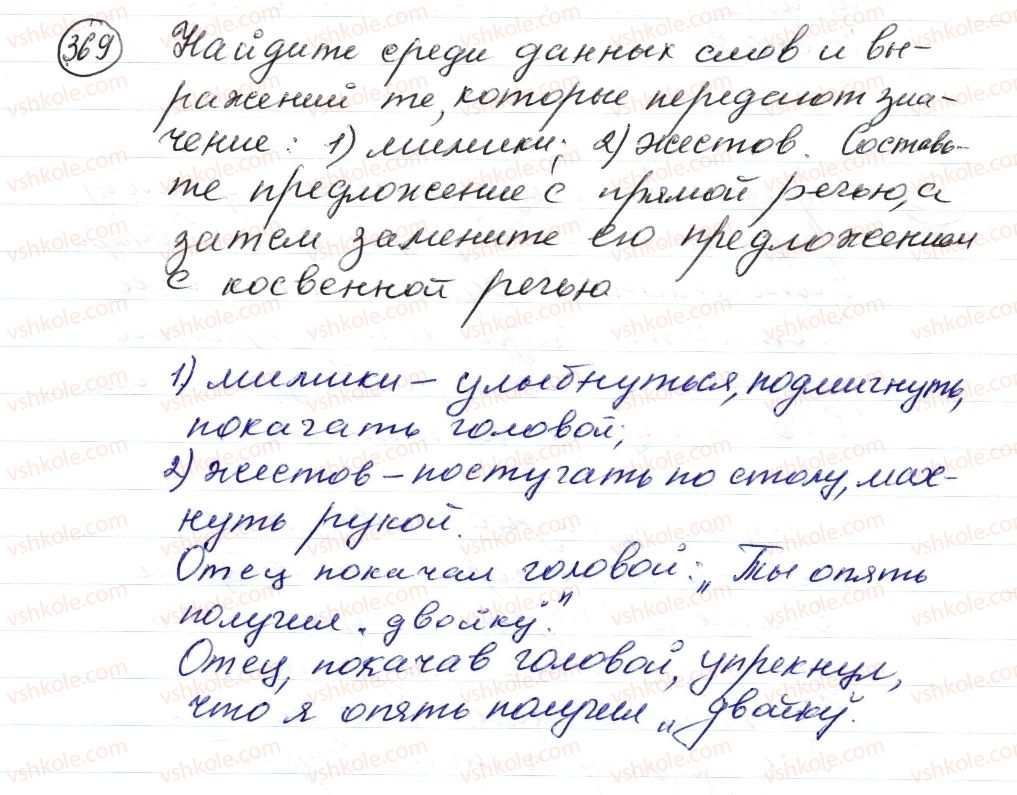 369 Найдите среди данных слов и вы-
ражений те, которые передают зна-
чение: 1) мимики; 2) жестов. Составь-
те предложение с прямой речью, а
затем замените его предложением
с косвенной речью
1) мимики – улыбнуться, подмигнуть,
покачать головой;
2) жестов – постучать по столу, мах-
нуть рукой.
Отец покачал головой: „Ты опять
получил „двойку".”
Отец, покачав головой, упрекнул,
что я опять получил „двойку".